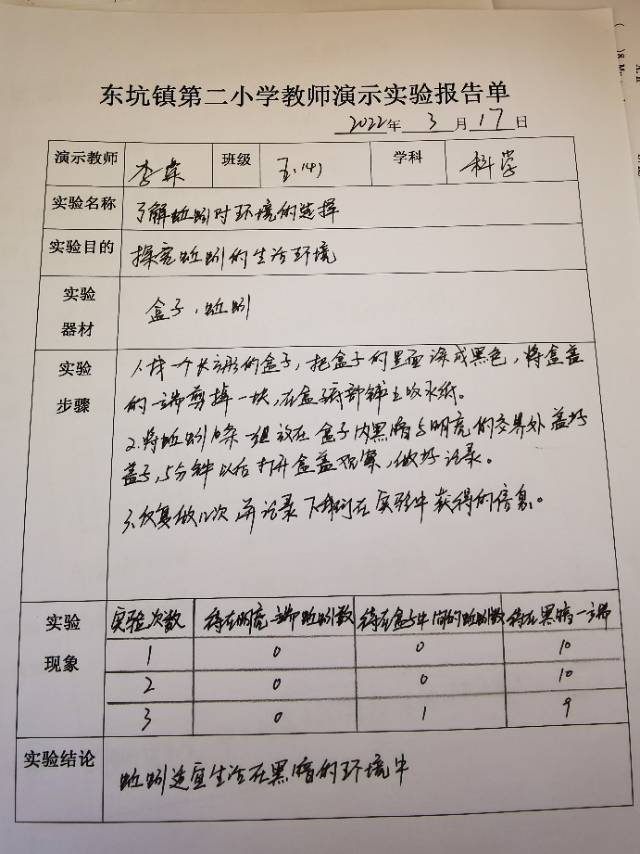 东坑镇第二小学教师演示实验报告单
2022年 3 月 17 日
演示教师 李 班级 五.(4) 学科 科学
实验名称 了解蚯蚓对环境的选择
实验目的 探究蚯蚓的生活环境
实验器材 盒子、蚯蚓
实验步骤
1、找一个长方形的盒子，把盒子的里面涂成黑色，将盒盖
的一端剪掉一块，在盒子底部铺上吸水纸。
2.将蚯蚓10条一组放在盒子内黑暗与明亮的交界处盖好
盖子，5分钟以后打开盒盖观察，做好记录。
3、反复做几次，并记录下我们在实验中获得的信息。
实验现象
实验次数 待在明亮一端的蚯蚓数 待在盒子中间的蚯蚓数 待在黑暗一端
1 0 0 10
2 0 0 10
3 0 1 9
实验结论 蚯蚓适宜生活在黑暗的环境中